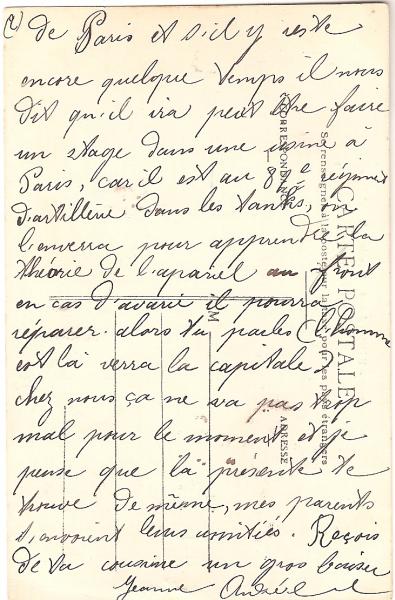 (2) de Paris et s'il y reste
encore quelque temps il nous
dit qu'il ira peut être faire
un stage dans une usine à
Paris, car il est au 81e régimet
d'artillerie dans les tanks, on
l'enverra pour apprendre la
théorie de l'apareil au front
en cas d'avarie il pourra
réparer. alors tu parles l'homme
est là verra la capitale.
chez nous ça ne va pas trop
mal pour le moment et je
pense que la présente te
trouve de même, mes parents
t'envoient leurs amitiés. Reçois
de ta cousine un gros baiser
Jeanne
CARTE POSTALE
Se renseigner à la poste pour les pays étrangers
CORRESPONDANCE
ADRESSE
M